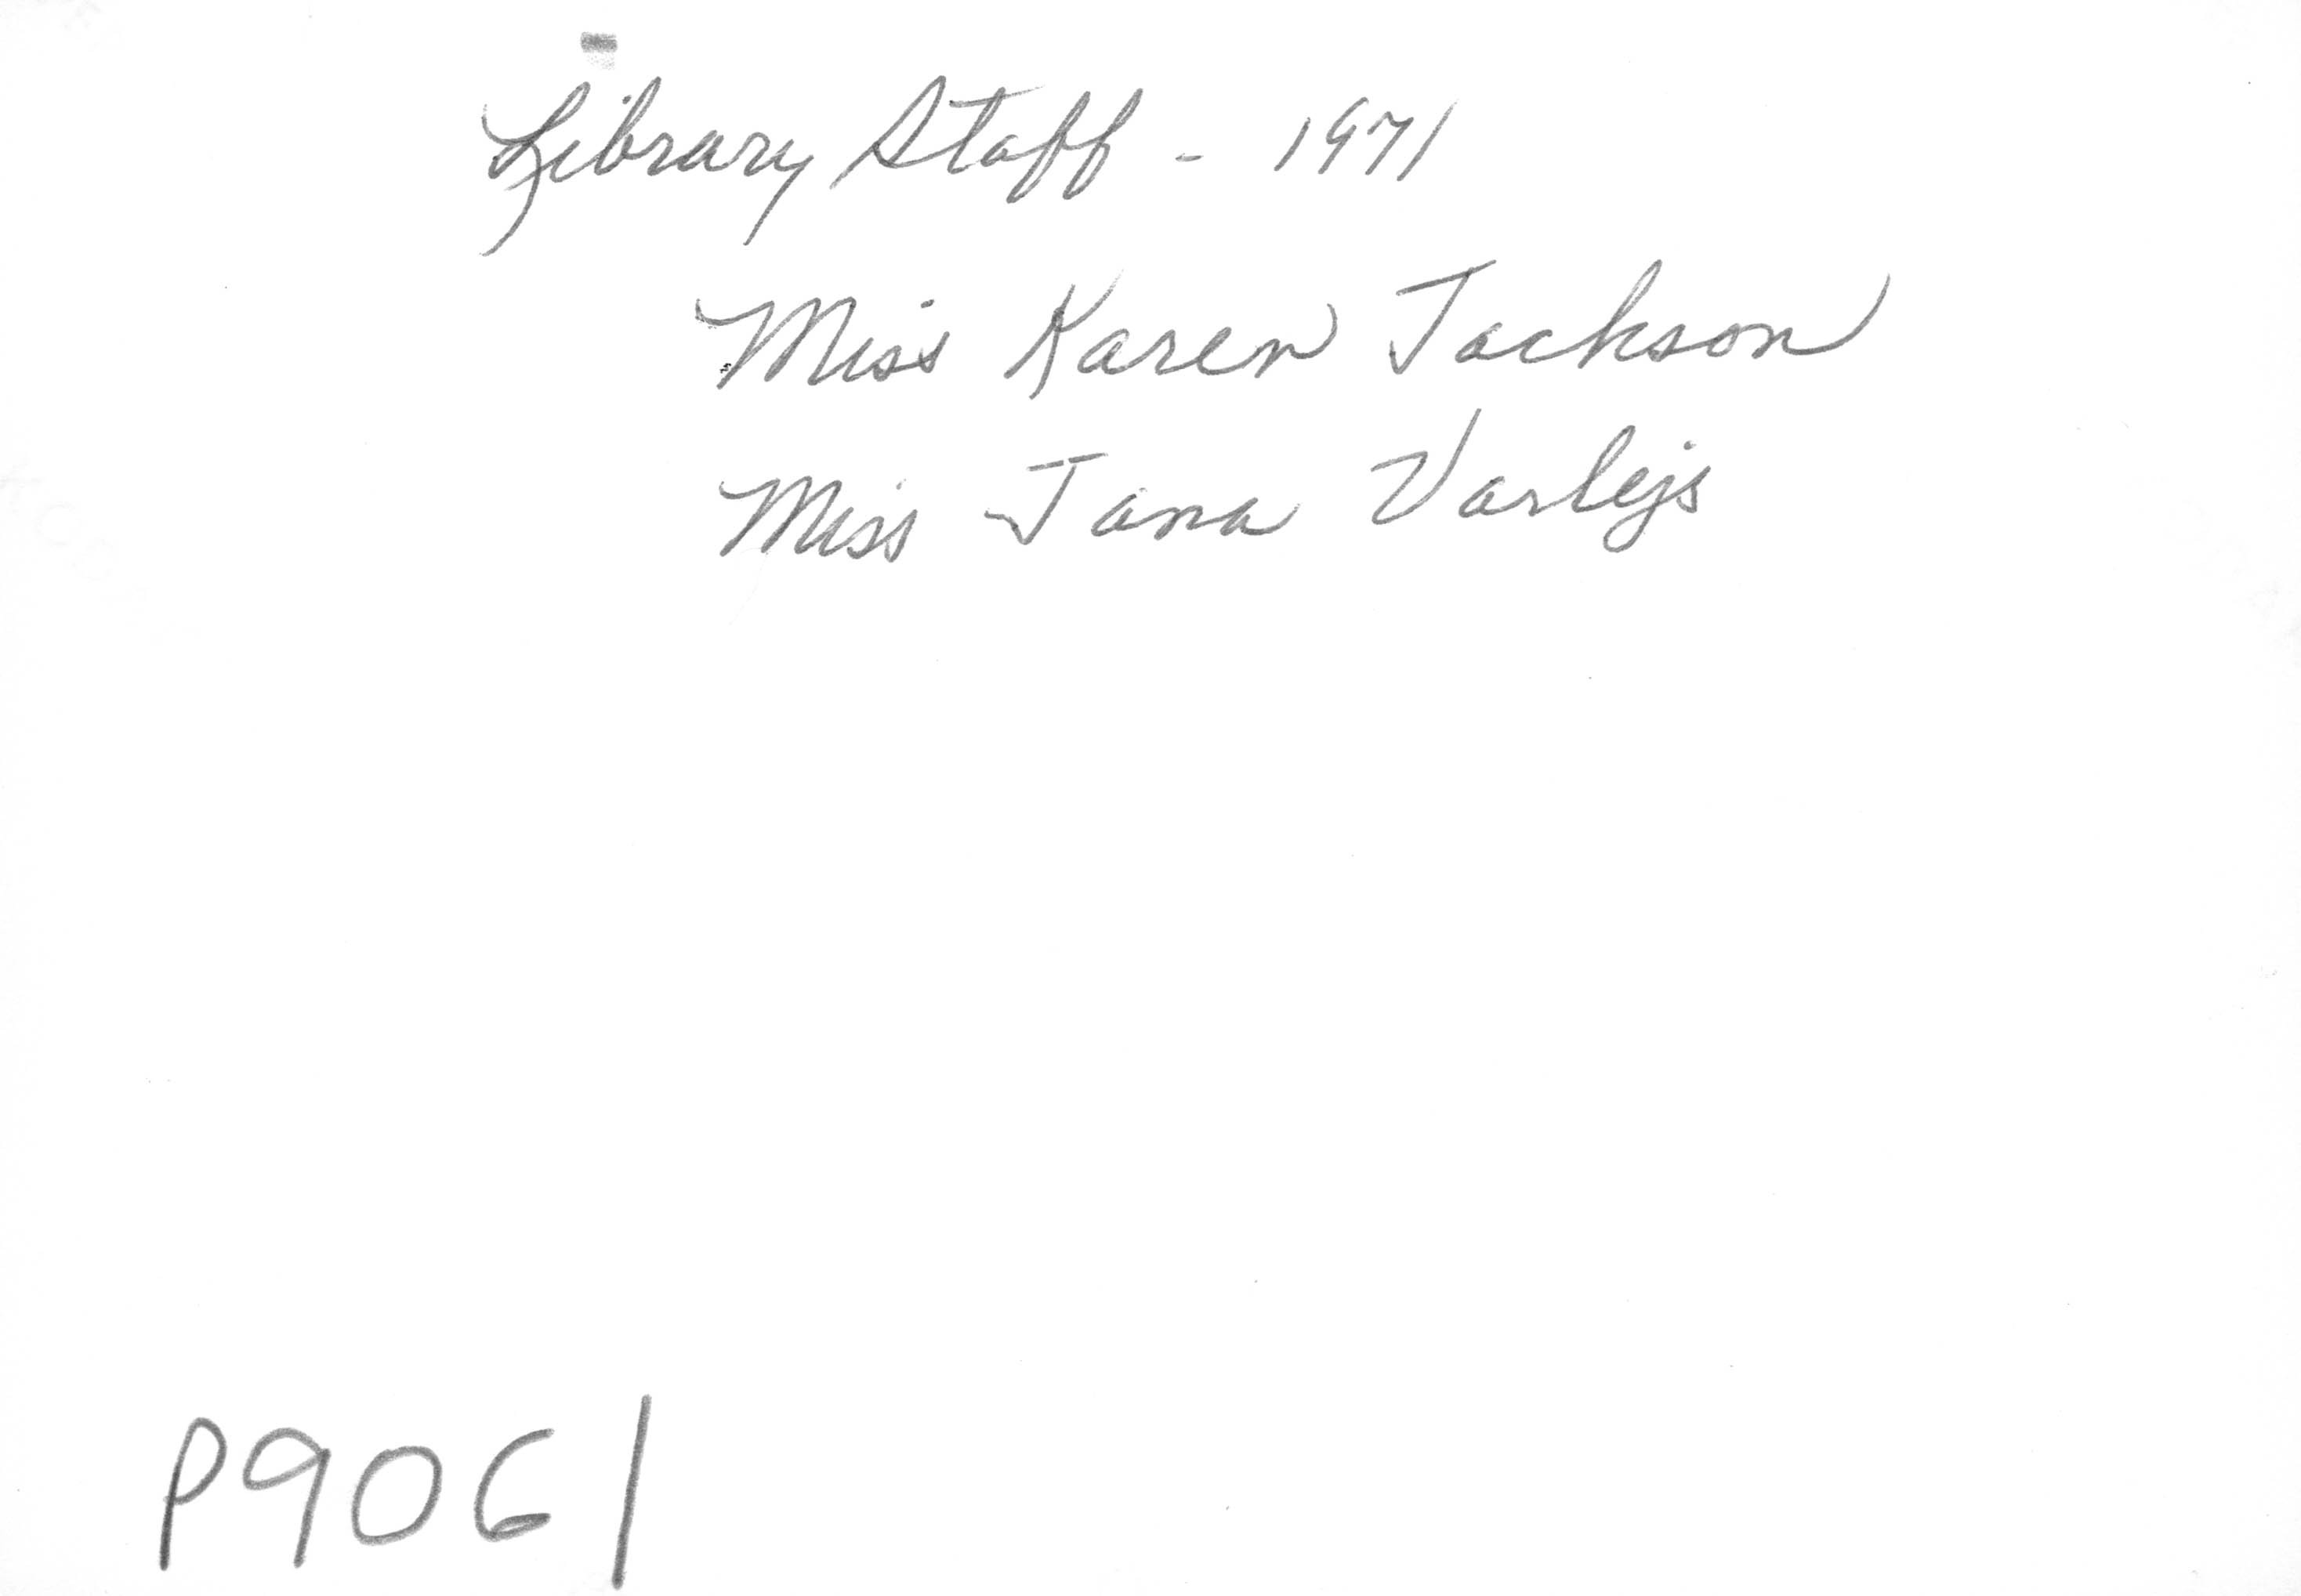 Library Staff - 1971
Miss Karen Jackson
Miss Jana Varlejs
P9061